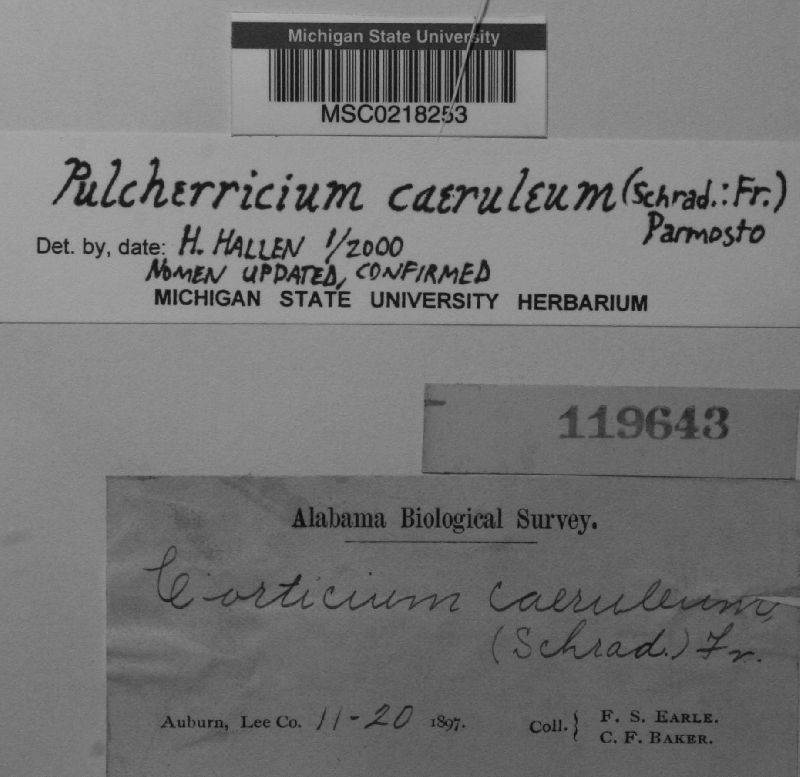 Michigan State University
MSC0218253
Pulcherricium caeruleum (Schrad.:Fr.)
Parmosto
Det. by, date: H. HALLEN 1/2000
NOMEN UPDATED, CONFIRMED
MICHIGAN STATE UNIVERSITY HERBARIUM
119643
Alabama Biological Survey.
Corticium caeruleum,
(Schrad.) Fr.
Auburn, Lee Co. 11-20 1897. Coll. { F. S. EARLE.
C. F. BAKER.